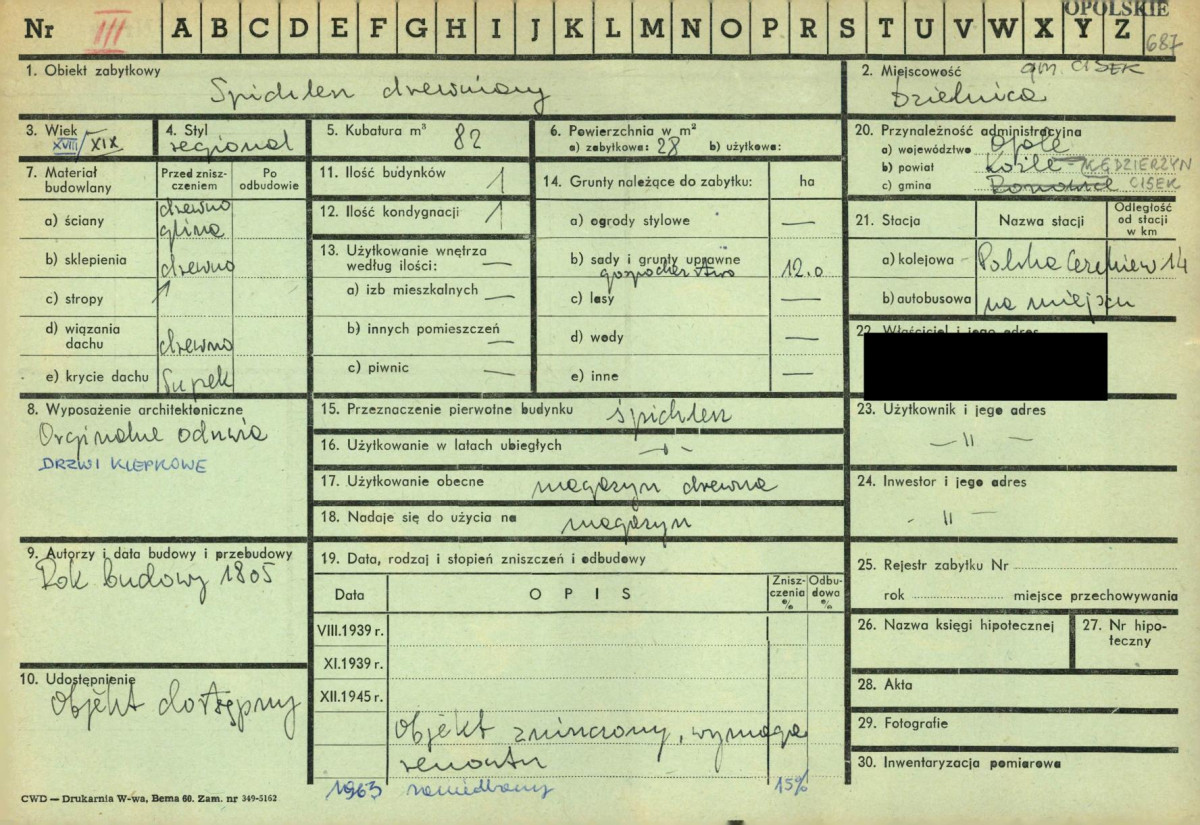 OPOLSKIE
Nr III A B C D E F G H I J K L M N O P R S T U V W X Y Z
687
1. Obiekt zabytkowy
Spichlerz drewniany
2. Miejscowość gm. CISEK
Dzielnica
3. Wiek
XVIII/XIX
4. Styl
regional
5. Kubatura m³ 82
6. Powierzchnia w m²
a) zabytkowa: 28 b) użytkowa:
20. Przynależność administracyjna
a) województwo Opole
b) powiat Koźle KĘDZIERZYN
c) gmina CISEK
7. Materiał budowlany
Przed zniszczeniem
Po odbudowie
a) ściany drewno
glina
b) sklepienia drewno
c) stropy
d) wiązania dachu drewno
e) krycie dachu łupek
11. Ilość budynków 1
12. Ilość kondygnacji 1
13. Użytkowanie wnętrza
według ilości: —
a) izb mieszkalnych —
b) innych pomieszczeń —
c) piwnic —
14. Grunty należące do zabytku: ha
a) ogrody stylowe —
b) sady i grunty uprawne
gospodarstwo 12.0
c) lasy —
d) wody —
e) inne —
21. Stacja
Nazwa stacji
Odległość
od stacji
w km
a) kolejowa Polska Cerekiew 14
b) autobusowa na miejscu
22. Właściciel i jego adres
8. Wyposażenie architektoniczne
Orginalne odrzwia
DRZWI KLEPKOWE
15. Przeznaczenie pierwotne budynku śpichlerz
16. Użytkowanie w latach ubiegłych -"-
17. Użytkowanie obecne magazyn drewna
18. Nadaje się do użycia na magazyn
23. Użytkownik i jego adres
— " —
24. Inwestor i jego adres
- " -
9. Autorzy i data budowy i przebudowy
Rok budowy 1805
19. Data, rodzaj i stopień zniszczeń i odbudowy
Data
OPIS
Zniszczenia %
Odbudowa %
VIII.1939 r.
XI.1939 r.
XII.1945 r.
Objekt zniszczony, wymaga
remontu
1963 zaniedbany 15%
25. Rejestr zabytku Nr
rok miejsce przechowywania
26. Nazwa księgi hipotecznej
27. Nr hipoteczny
28. Akta
29. Fotografie
30. Inwentaryzacja pomiarowa
10. Udostępnienie
Objekt dostępny
CWD — Drukarnia W-wa, Bema 60. Zam. nr 349-5162